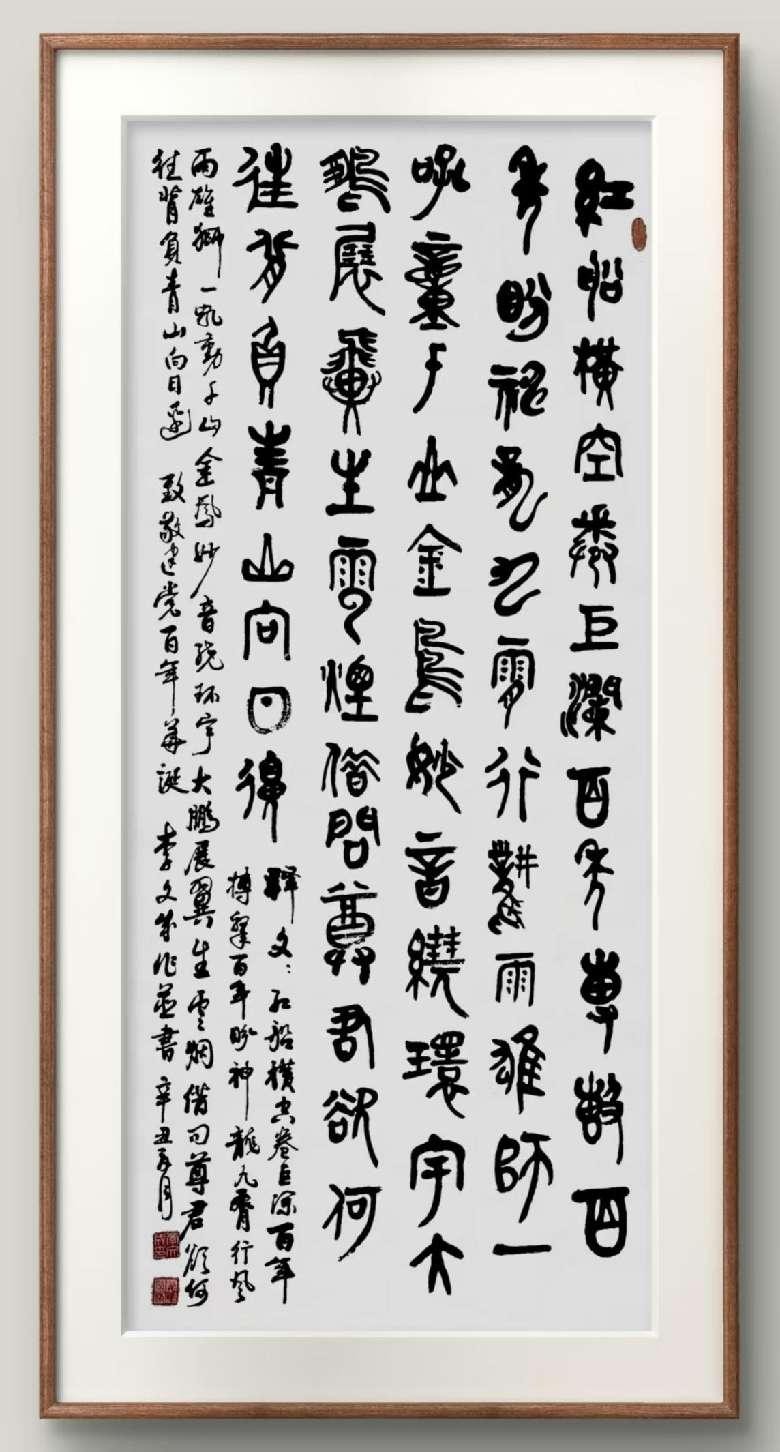 紅船橫空卷巨瀾百年專擊百
年盼神龍九霄行風雨雄師一
吼童千山金鳳妙音繞環宇大
鵬展翼生雲煙借問尊君欲何
往背負青山向日還
释文：红船横空卷巨深百年
搏擊百年盼神龍九霄行风
雨雄獅一吼動千山金鳳妙音绕环宇大鵬展翼生雲烟借问尊君欲何
往背負青山向日還 致敬建党百年華誕 李文成作並書 辛丑五月